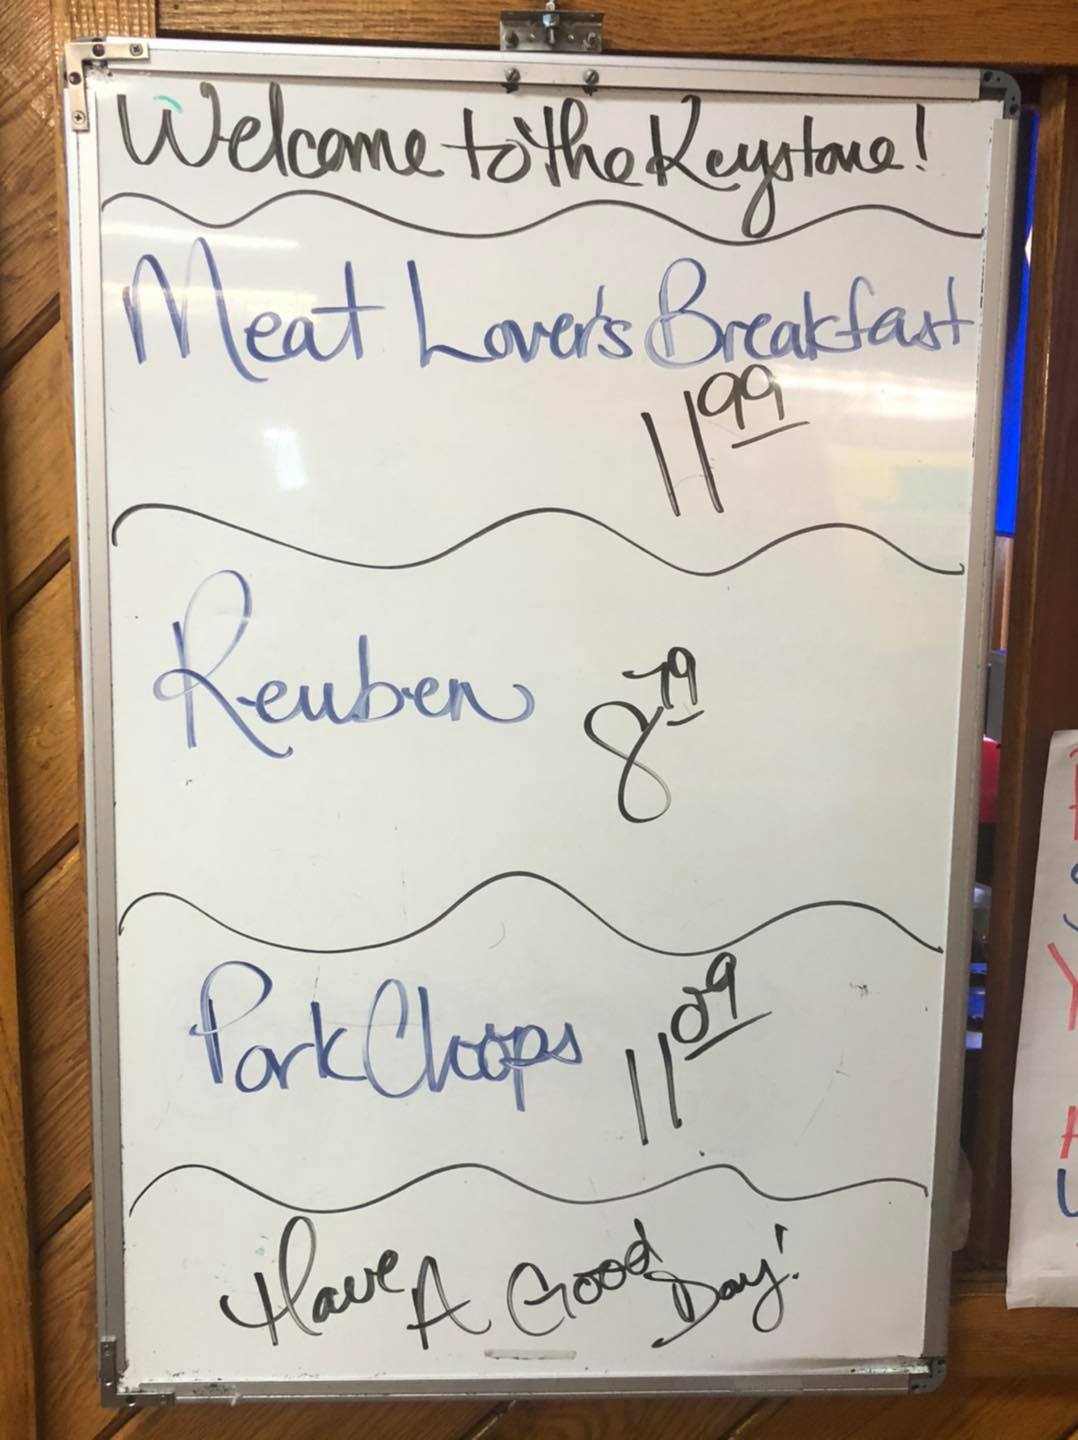 Welcome to the Keystone!
Meat Lover's Breakfast
11 99
Reuben 8 79
Pork Chops 11 09
Have A Good Day!